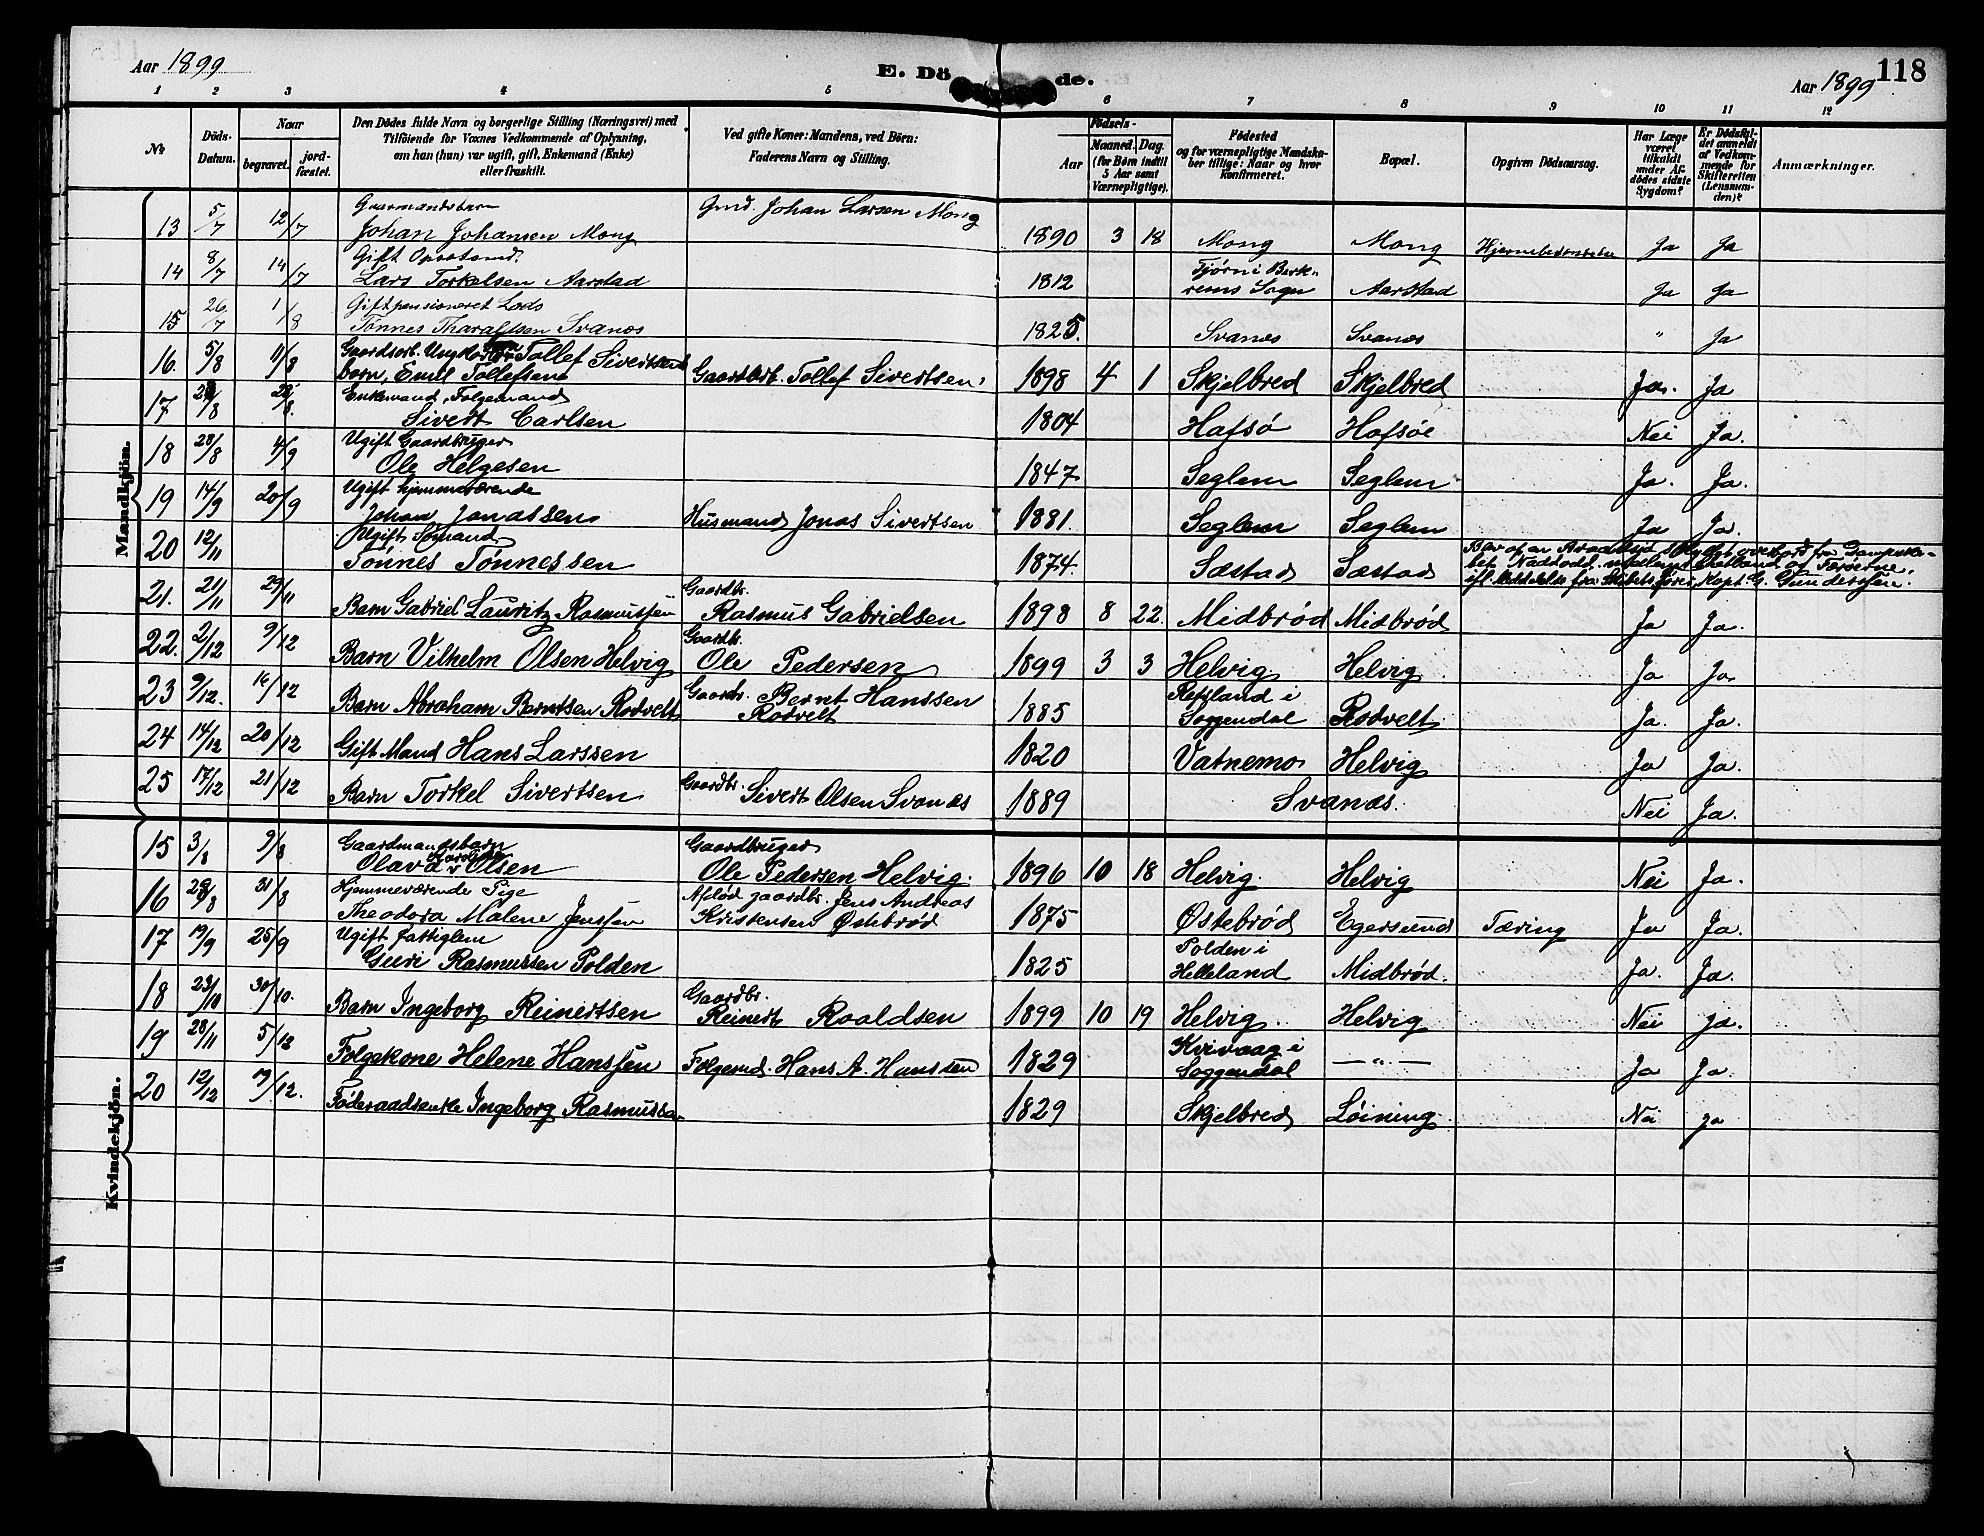 Aar 1899
E. Dö de.
Aar 1899
118
1 2 3 4 5 6 7 8 9 10 11 12
No
Döds-Datum.
Naar
begravet.
jord-fæstet.
Den Dödes fulde Navn og borgerlige Stilling (Næringsvei) med
Tilföiende for Voxnes Vedkommende af Oplysning,
om han (hun) var ugift, gift, Enkemand (Enke)
eller fraskilt.
Ved gifte Koner: Mandens, ved Börn:
Faderens Navn og Stilling.
Födsels-
Aar
Maaned. Dag.
(for Börn indtil
5 Aar samt
Værnepligtige).
Födested
og for værnepligtige Mandska-
ber tillige: Naar og hvor
konfirmeret.
Bopæl.
Opgiven Dödsaarsag.
Har Læge
været
tilkaldt
under Af-
dödes sidste
Sygdom?
Er Dödsfal-
det anmeldt
af Vedkom-
mende for
Skifteretten
(Lensman-
den)?
Anmærkninger.
Mandkjön.
Gaarmandsbarn Gmd. Johan Larsen Mong
13 5/7 12/7 Johan Johansen Mong 1890 3 18 Mong Mong Ja Ja
Gift Opsitand. Fjørn i Berk-
14 8/7 14/7 Lars Torkelsen Aarstad 1812 rems Sogn Aarstad Ja Ja
Gift pensioneret Lods
15 26/7 1/8 Tønnes Tharaldsen Svanes 1825. Svanes Svanes " Ja
Gaardsarb. Tollef Sivertsens
16. 5/8 11/8 barn, Emil Tollefsen Gaardarb. Tollef Sivertsen. 1898 4 1 Skjelbred Skjelbred Ja. Ja
Enkemand, Folgemand
17 /8 28/8. Sivert Carlsen 1804 Hafsö Hafsöe Nei Ja.
Ugift Gaardbruger
18 28/8 4/9 Ole Helgesen 1847 Seglem Seglem Ja. Ja.
Ugift hjemmeværende
19 14/9 20/9 Johan Jonassen Husmand Jonas Sivertsen 1881. Seglem Seglem Ja Ja.
Ugift Sømand
20 12/11 Tønnes Tønnessen 1874. Sæstad Sæstad
Blev af en Braadsjø skyllet overbord fra Dampski-
bet Nadsodd. mellem Shetland og Færøerne,
ifl. Meddelelse fra Skibets fører, Kapt. G. Gundersen.
Gaardb.
21. 21/11 29/11 Barn Gabriel Lauritz Rasmussen Rasmus Gabrielsen 1898 8 22. Midbrød Midbrød Ja Ja.
Gaardb.
22. 2/12 9/12 Barn Vilhelm Olsen Helvig Ole Pedersen 1899 3 3 Helvig Helvig Ja Ja
Gaardb. Bernt Hanssen Refsland i
23 9/12. 16/12 Barn Abraham Berntsen Rodvelt Rodvelt 1885 Soggendal Rodvelt. Ja. Ja.
24 14/12 20/12 Gift Mand Hans Larssen 1820 Vatnemo Helvig Ja Ja.
25 17/12 21/12 Barn Torkel Sivertsen Gaardbr. Sivert Olsen Svanæs 1889 Svanæs. Nei Ja.
Kvindekjön.
Gaardmandsbarn Gaardbruger
15 3/8 9/8 Olava Olsen Ole Pedersen Helvig. 1896 10 18 Helvig. Helvig Nei Ja.
Hjemmeværende Pige Afdöd gaardbr. Jens Andreas
16 28/8 31/8 Theodora Malene Jenssen Kristensen Østebrød 1875 Østebrød Egersund Tæring Ja Ja.
Ugift fattiglem Polden i
17 19/9 25/9 Guri Rasmussen Polden 1825 Helleland Midbrød. Ja. Ja.
Gaardbr.
18 23/10 30/10. Barn Ingeborg Reinertsen Reinert Roaldsen 1899 10 19 Helvig. Helvig Nei ja.
Kvivaag i
19 28/11 5/12 Folgekone Helene Hanssen Folgemd. Hans A. Hanssen 1829 Soggendal — „ — Ja Ja.
20 12/12 19/12. Føderaadsenke Ingeborg Rasmussen 1829 Skjelbred Løining. Nei ja